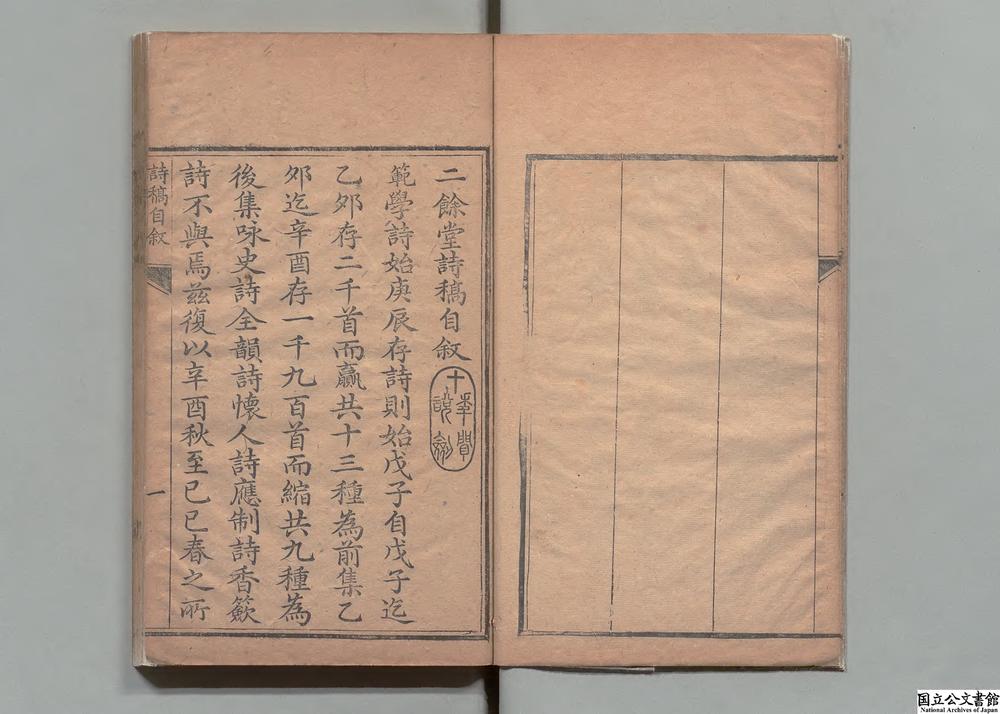 二餘堂詩稿自叙
範學詩始庚辰存詩則始戊子自戊子迄
乙夘存二千首而贏共十三種為前集乙
夘迄辛酉存一千九百首而縮共九種為
後集咏史詩全韻詩懷人詩應制詩香籨
詩不與焉兹復以辛酉秋至己巳春之所
詩稿自叙
一
国立公文書館
National Archives of Japan